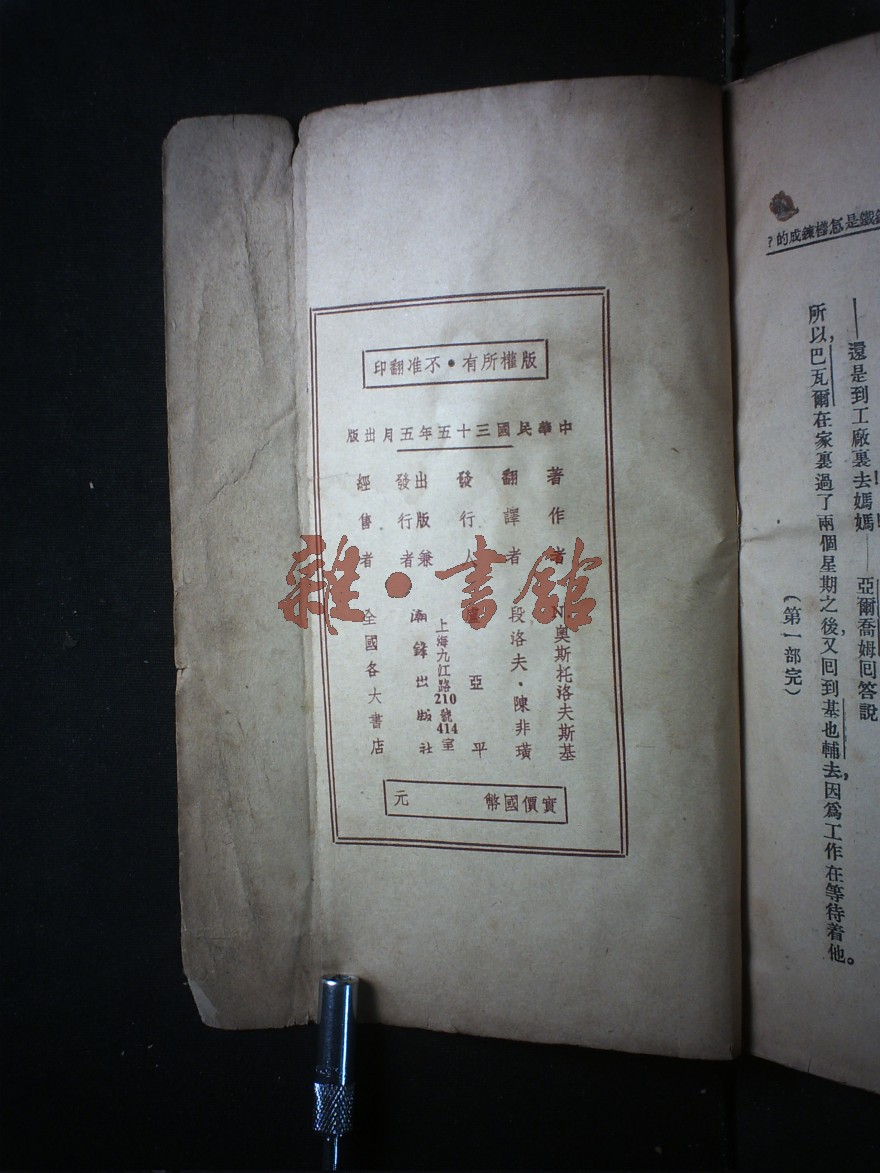 鐵是怎樣鍊成的?
——還是到工廠裏去媽媽——亞爾喬姆回答說
所以,巴瓦爾在家裏過了兩個星期之後,又回到基也輔去,因爲工作在等待着他。
(第一部完)
版權所有•不准翻印
中華民國三十五年五月出版
著作者 N.奧斯托洛夫斯基
翻譯者 段洛夫•陳非璜
發行人 亞平
出版兼發行者 上海九江路210號414室 潮鋒出版社
經售者 全國各大書店
實價國幣 元
雜•書館